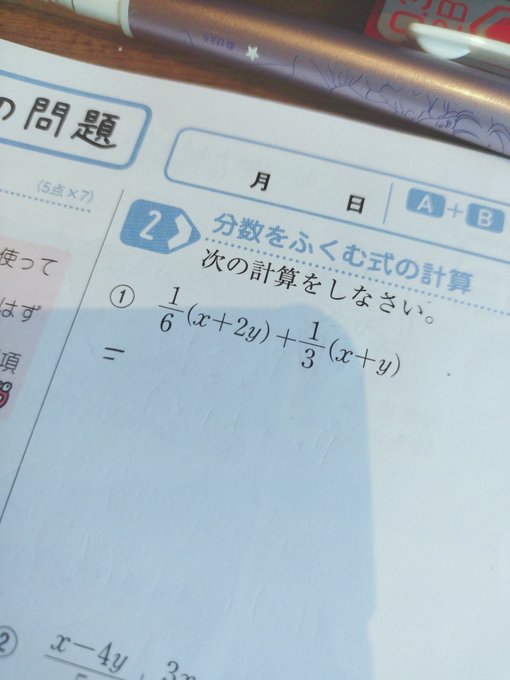 の問題
(5点×7)
使って
はず
項
月 日 A+B
2 分数をふくむ式の計算
次の計算をしなさい。
① 1/6(x+2y)+1/3(x+y)
=
② x-4y
3x